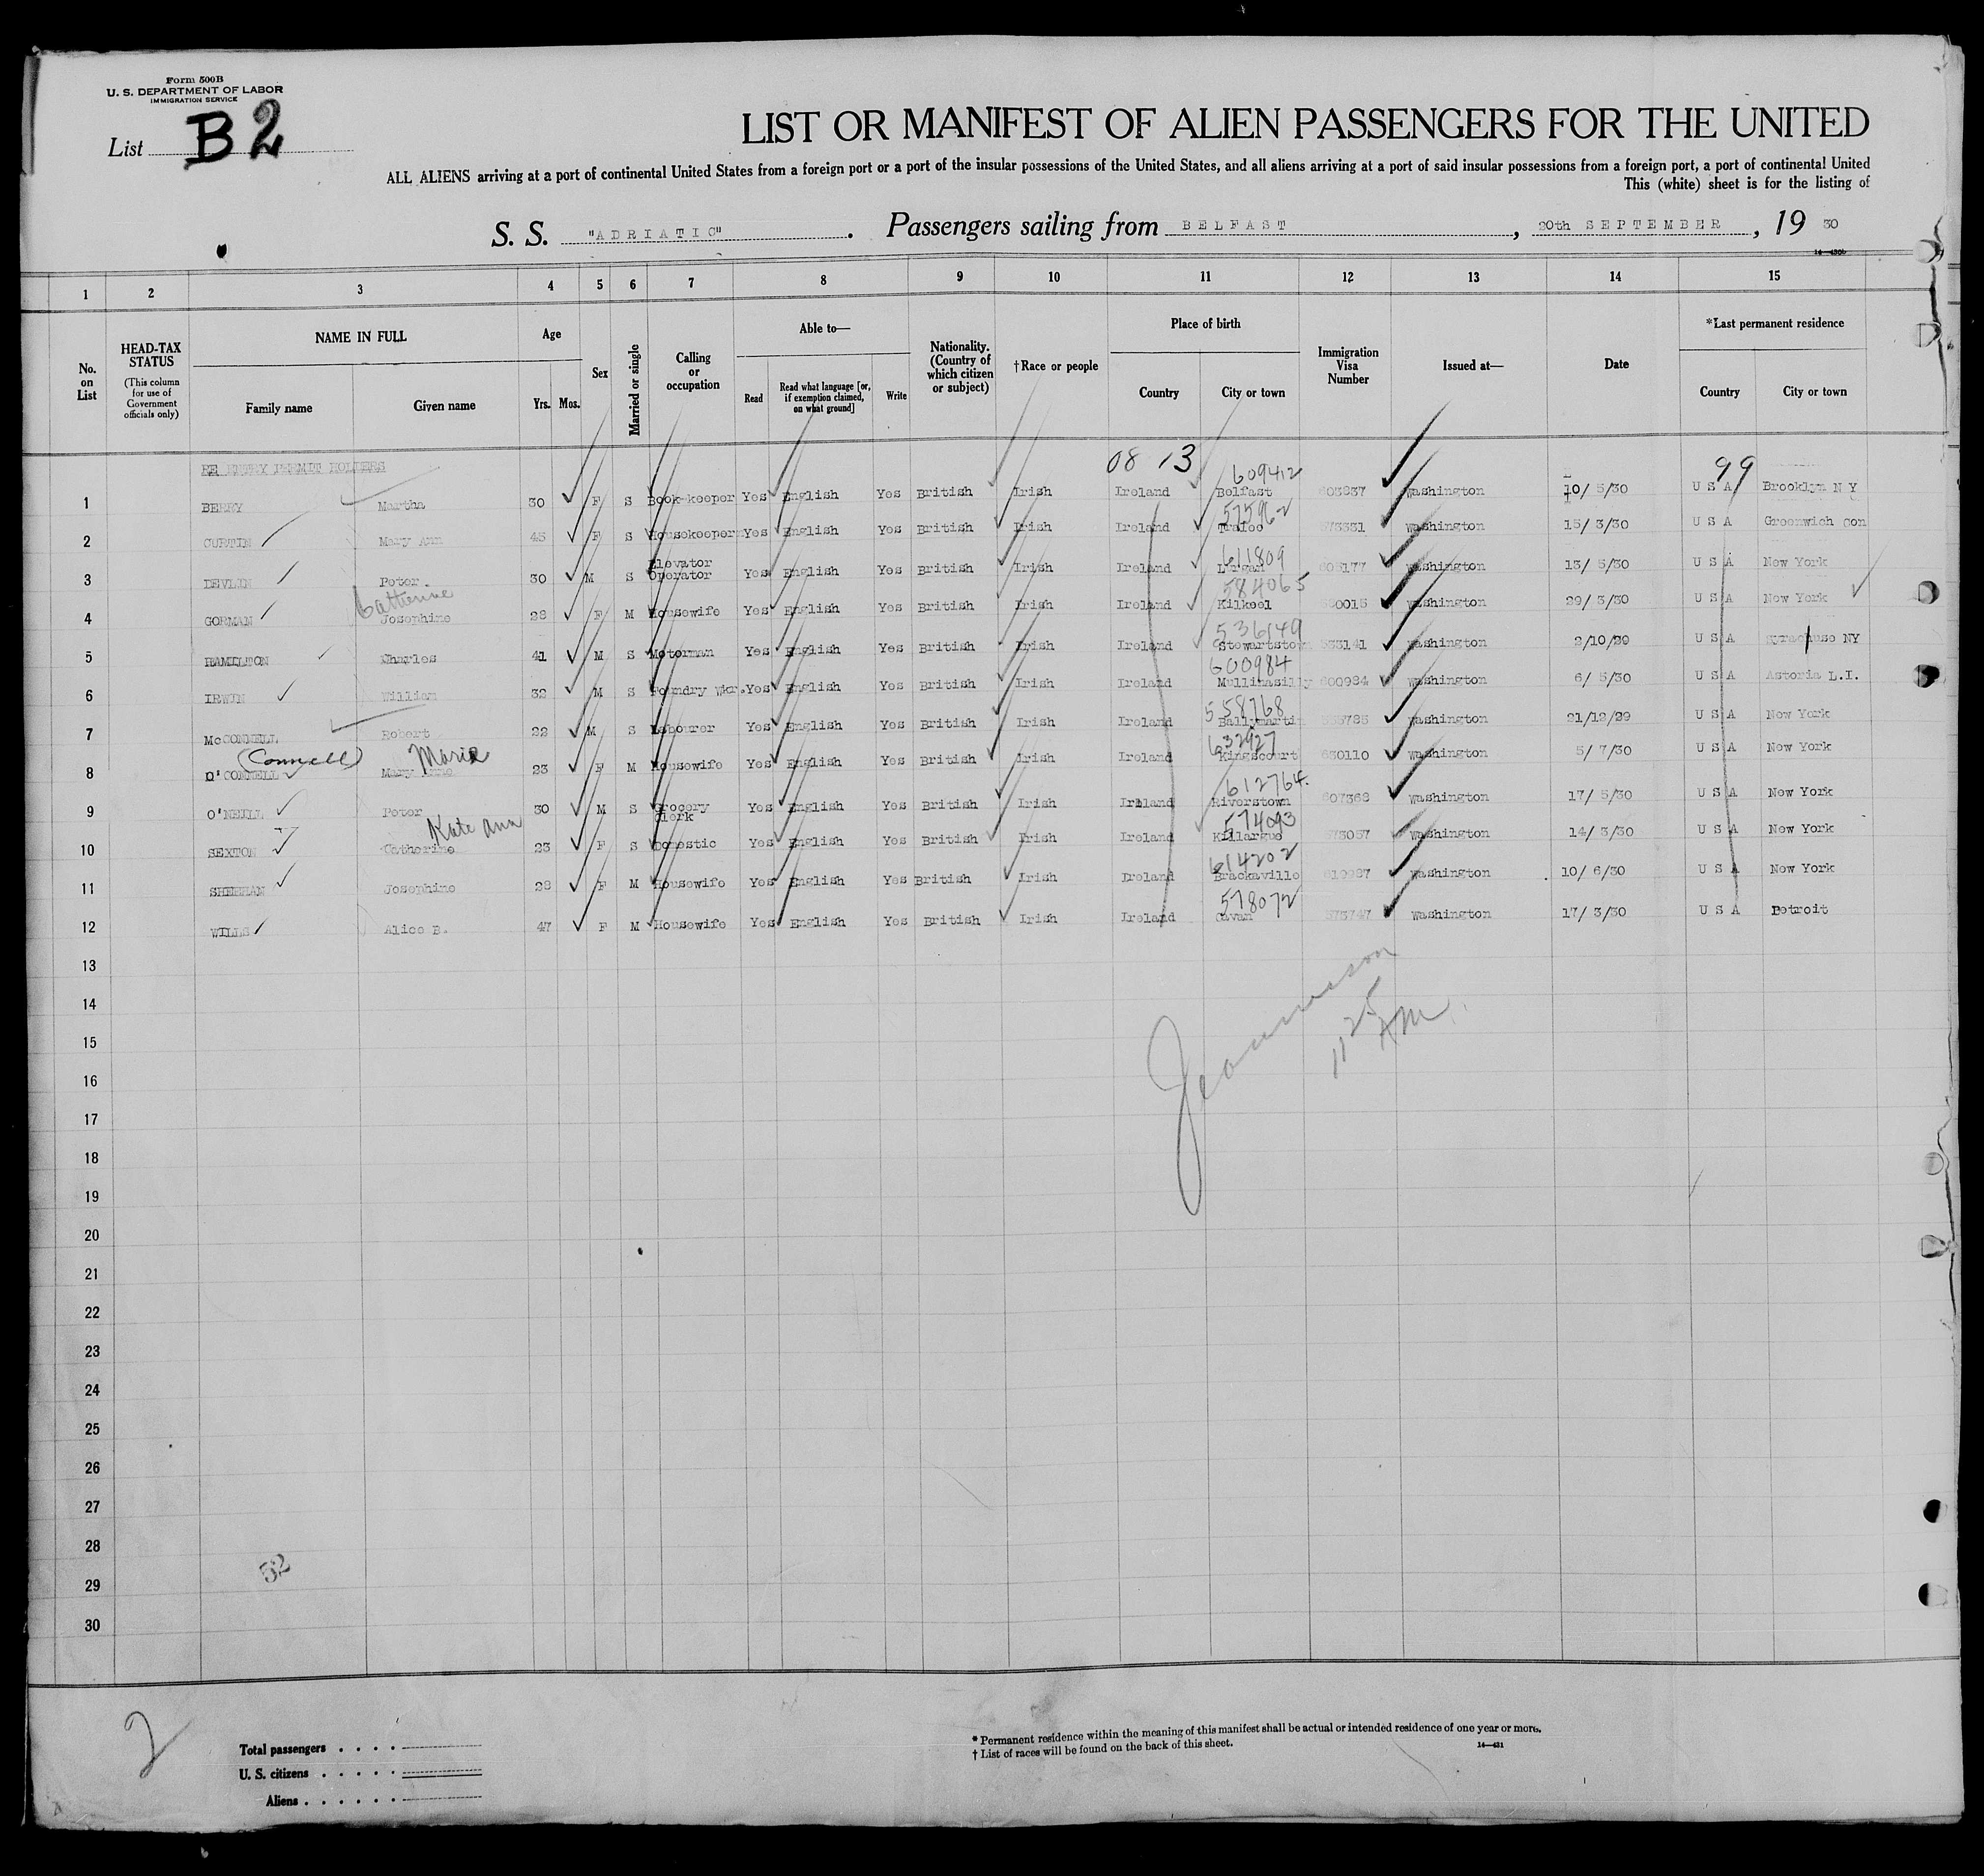 Form 500B
U. S. DEPARTMENT OF LABOR
IMMIGRATION SERVICE
List B2
LIST OR MANIFEST OF ALIEN PASSENGERS FOR THE UNITED
ALL ALIENS arriving at a port of continental United States from a foreign port or a port of the insular possessions of the United States, and all aliens arriving at a port of said insular possessions from a foreign port, a port of continental United
This (white) sheet is for the listing of
S. S. "ADRIATIC". Passengers sailing from BELFAST, 20th SEPTEMBER, 19 30
1 2 3 4 5 6 7 8 9 10 11 12 13 14 15
No. on List
HEAD-TAX STATUS
(This column for use of Government officials only)
NAME IN FULL
Family name Given name
Age
Yrs. Mos.
Sex
Married or single
Calling or occupation
Able to—
Read
Read what language [or, if exemption claimed, on what ground]
Write
Nationality. (Country of which citizen or subject)
†Race or people
Place of birth
Country City or town
Immigration Visa Number
Issued at—
Date
*Last permanent residence
Country City or town
RE ENTRY PERMIT HOLDERS
08 13 99
609412
1 BERRY Martha 30 F S Book-keeper Yes English Yes British Irish Ireland Belfast 603837 Washington 10/ 5/30 U S A Brooklyn N Y
2 CURTIN Mary Ann 45 F S Housekeeper Yes English Yes British Irish Ireland Tralee Washington 15/ 3/30 U S A Greenwich Con
611809
3 DEVLIN Peter 30 M S Elevator Operator Yes English Yes British Irish Ireland Lurgan 605177 Washington 13/ 5/30 U S A New York
Catherine 584065
4 GORMAN Josephine 28 F M Housewife Yes English Yes British Irish Ireland Kilkeel Washington 29/ 3/30 U S A New York
536149
5 HAMILTON Charles 41 M S Motorman Yes English Yes British Irish Ireland Stewartstown 533141 Washington 2/10/29 U S A Syracuse NY
600984
6 IRWIN William 32 M S Foundry Wkr. Yes English Yes British Irish Ireland Mullinasilly 600984 Washington 6/ 5/30 U S A Astoria L.I.
558768
7 McCONNELL Robert 22 M S Labourer Yes English Yes British Irish Ireland Ballymartin Washington 21/12/29 U S A New York
(Connell) Marie 632927
8 O'CONNELL Mary 23 F M Housewife Yes English Yes British Irish Ireland Kingscourt 630110 Washington 5/ 7/30 U S A New York
612764.
9 O'NEILL Peter 30 M S Grocery Clerk Yes English Yes British Irish Ireland Riverstown 607368 Washington 17/ 5/30 U S A New York
Kate Ann 574093
10 SEXTON Catherine 23 F S Domestic Yes English Yes British Irish Ireland Killargue 573057 Washington 14/ 3/30 U S A New York
614202
11 SHEEHAN Josephine 28 F M Housewife Yes English Yes British Irish Ireland Brackaville Washington 10/ 6/30 U S A New York
578072
12 WILLS Alice B. 47 F M Housewife Yes English Yes British Irish Ireland Cavan 573747 Washington 17/ 3/30 U S A Detroit
13
14
15
11 25 AM
16
17
18
19
20
21
22
23
24
25
26
27
28
29
52
30
2
Total passengers
U. S. citizens
Aliens
* Permanent residence within the meaning of this manifest shall be actual or intended residence of one year or more.
† List of races will be found on the back of this sheet.
14—431